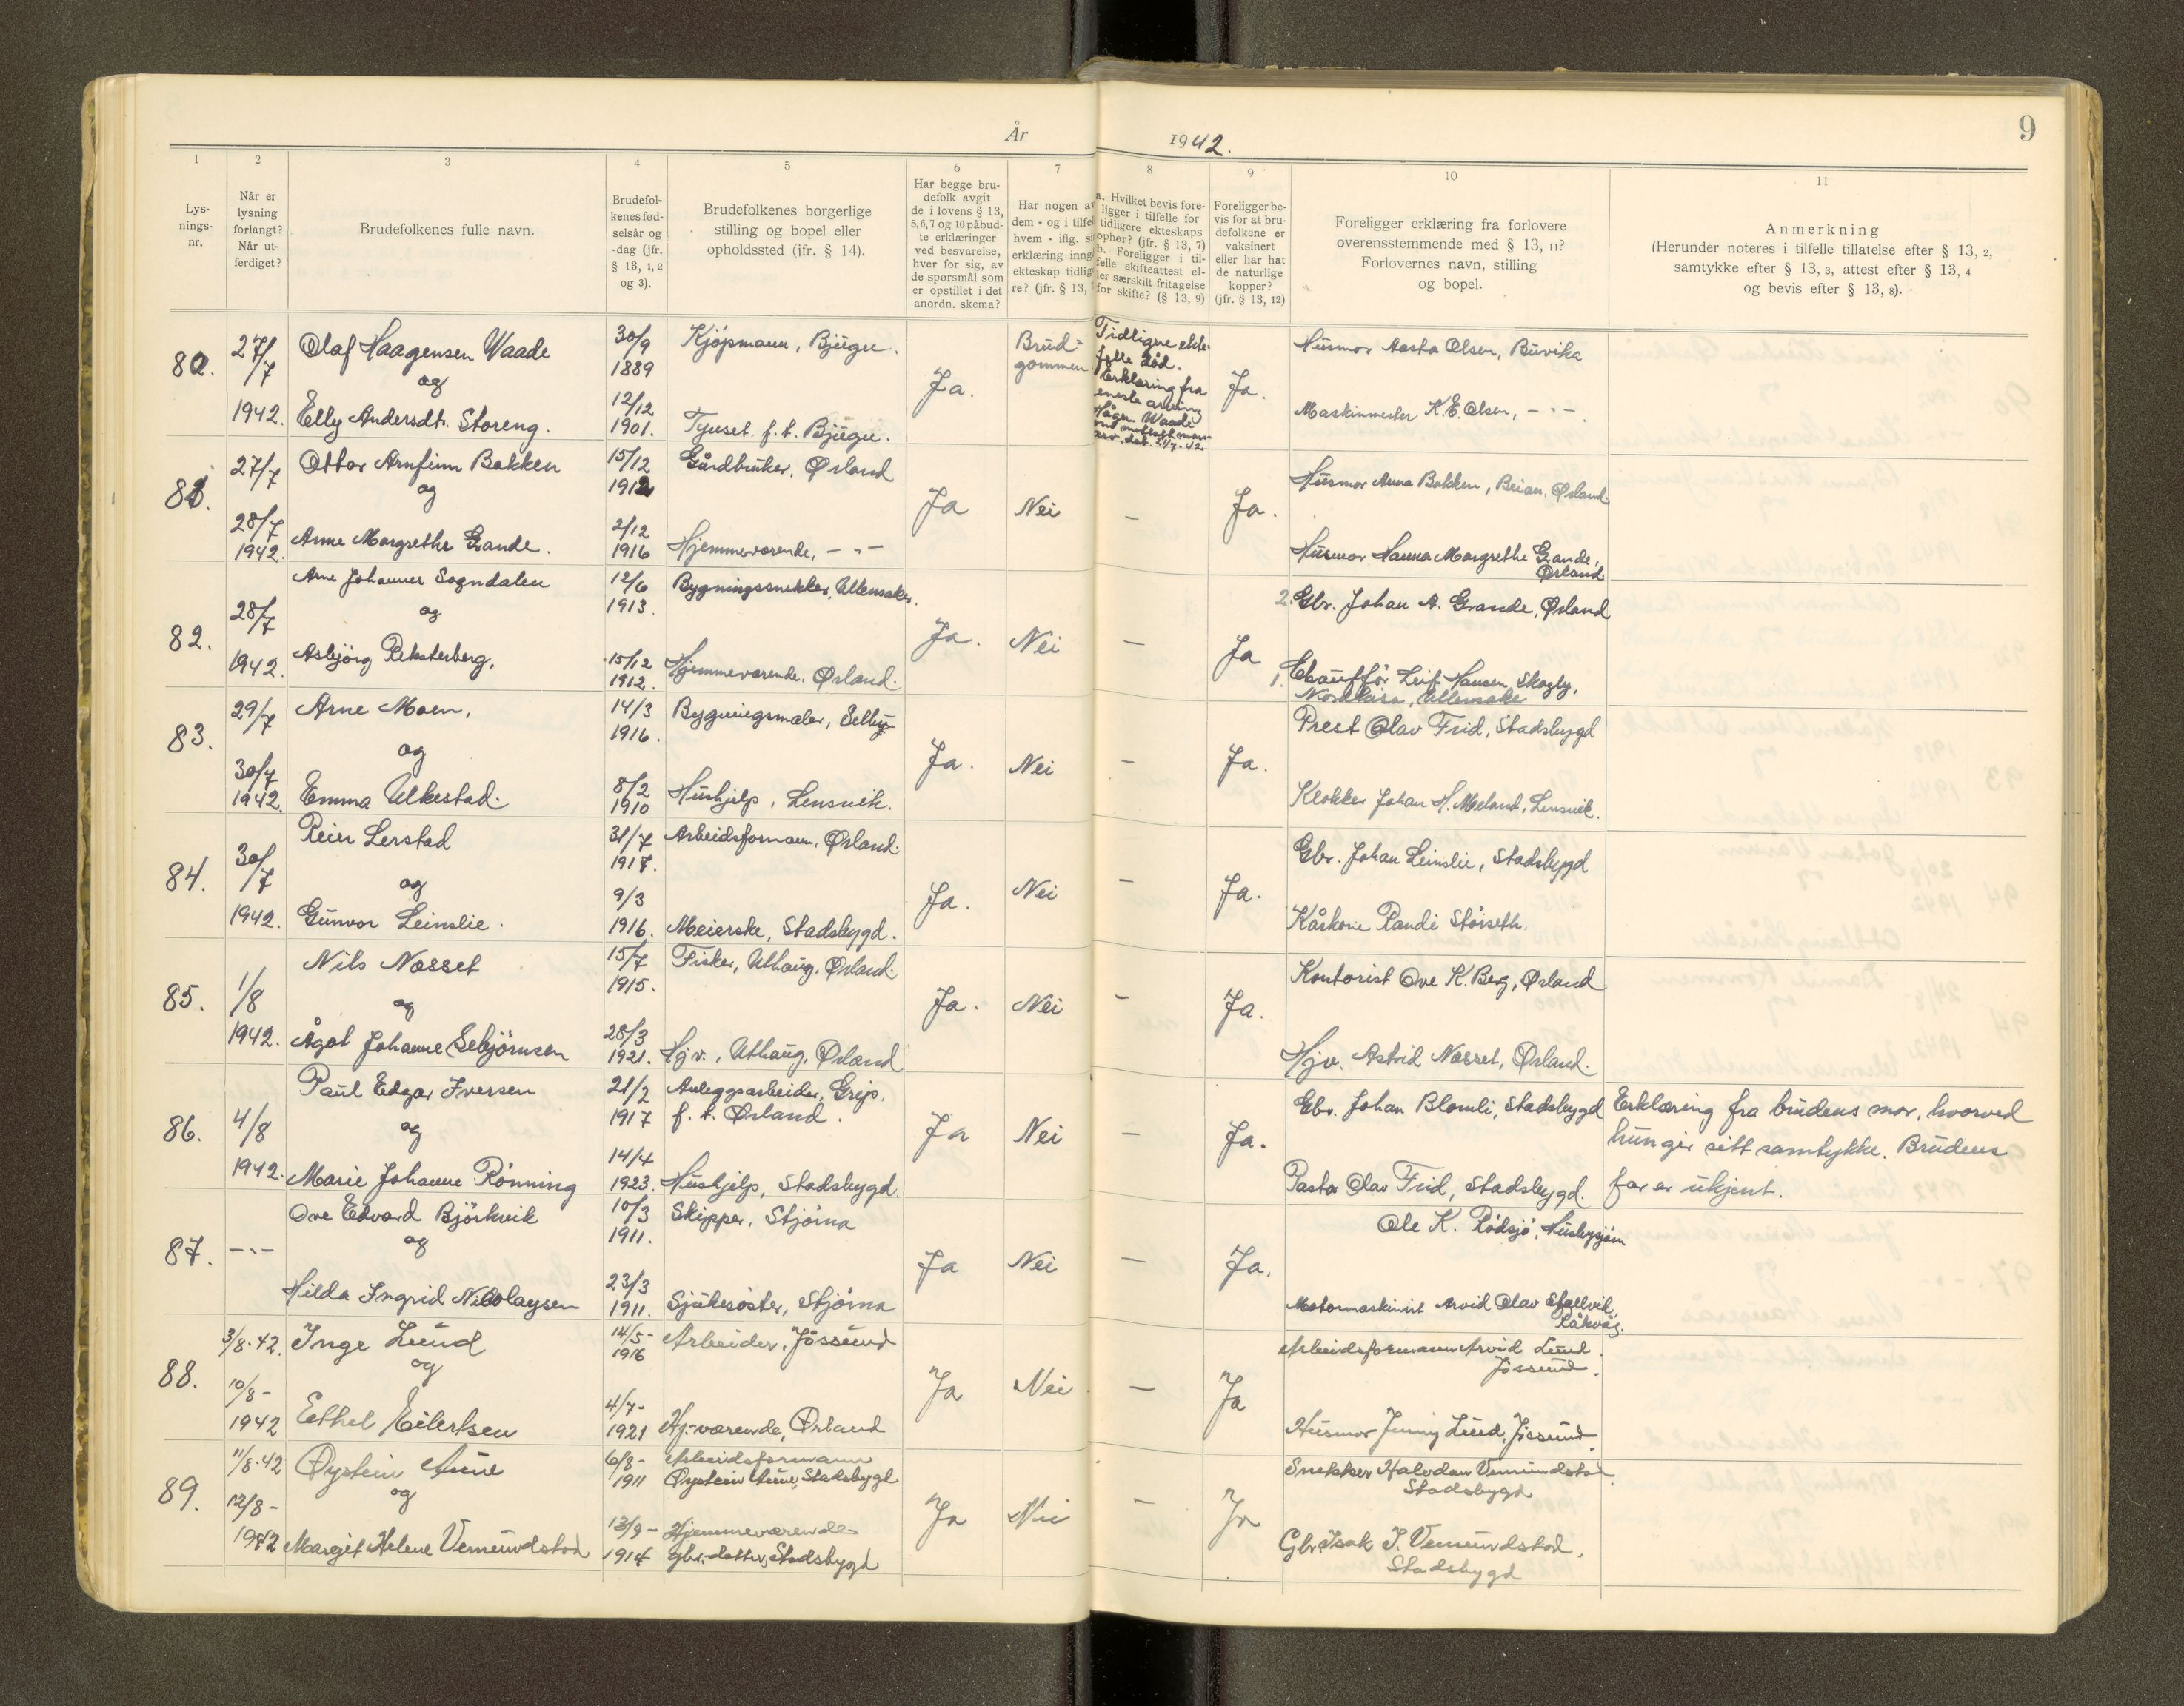 År 1942. 9
1 2 3 4 5 6 7 8 9 10 11
Lys-
nings-
nr.
Når er
lysning
forlangt?
Når ut-
ferdiget?
Brudefolkenes fulle navn.
Brudefol-
kenes fød-
selsår og
-dag (jfr.
§ 13, 1, 2
og 3).
Brudefolkenes borgerlige
stilling og bopel eller
opholdssted (jfr. § 14).
Har begge bru-
defolk avgit
de i lovens § 13,
5, 6, 7 og 10 påbud-
te erklæringer
ved besvarelse,
hver for sig, av
de spørsmål som
er opstillet i det
anordn. skema?
Har nogen av
dem - og i tilfel
hvem - iflg. s
erklæring inng
ekteskap tidlig
re? (jfr. § 13,
a. Hvilket bevis fore-
ligger i tilfelle for
tidligere ekteskaps
ophør? (jfr. § 13, 7)
b. Foreligger i til-
felle skifteattest el-
ler særskilt fritagelse
for skifte? (§ 13, 9)
Foreligger be-
vis for at bru-
defolkene er
vaksinert
eller har hat
de naturlige
kopper?
(jfr. § 13, 12)
Foreligger erklæring fra forlovere
overensstemmende med § 13, 11?
Forlovernes navn, stilling
og bopel.
Anmerkning
(Herunder noteres i tilfelle tillatelse efter § 13, 2,
samtykke efter § 13, 3, attest efter § 13, 4
og bevis efter § 13, 8).
80.
27/7
1942.
Olaf Haagensen Waade
og
Elly Andersdt. Storeng.
30/9
1889
12/12
1901.
Kjöpmann, Bjugn.
Tynset f. t. Bjugn.
Ja.
Brud-
gommen
Tidligere ekte-
felle död.
Erklæring fra
eneste arving
Hågen Waade
Ja.
Husmor Aasta Olsen, Buvika
Maskinmester K. E. Olsen, - " -
81.
27/7
28/7
1942.
Ottar Arnfinn Bakken
og
Anne Margrethe Grande.
15/12
1912
2/12
1916
Gårdbruker, Ørland
Hjemmeværende, - " -
Ja
Nei
-
Ja.
Husmor Anna Bakken, Beian, Ørland.
Husmor Hanna Margrethe Grande,
Ørland
82.
28/7
1942.
Arne Johannes Sogndalen
og
Asbjörg Reksterberg.
12/6
1913.
15/12
1912.
Bygningssnekker, Ullensaker.
Hjemmeværende. Ørland.
Ja.
Nei
-
Ja
2. Gbr. Johan A. Grande, Ørland
1. Chaufför Leif Hansen Skogly,
Nordkisa, Ullensaker
83.
29/7
30/7
1942.
Arne Moen,
og
Emma Ulkestad.
14/3
1916.
8/2
1910
Bygningsmaler, Selbu
Hushjelp, Lensvik.
Ja.
Nei
-
Ja.
Prest Olav Frid, Stadsbygd
Klokker Johan H. Meland, Lensvik.
84.
30/7
1942.
Reier Lerstad
og
Gunvor Leinslie.
31/7
1917.
9/3
1916.
Arbeidsformann, Ørland.
Meierske, Stadsbygd.
Ja.
Nei
-
Ja.
Gbr. Johan Leinslie, Stadsbygd
Kårkone Randi Störseth.
85.
1/8
1942.
Nils Næsset
og
Ågot Johanne Sebjörnsen
15/7
1915.
28/3
1921.
Fisker, Uthaug, Ørland.
Hjv., Uthaug, Ørland
Ja.
Nei
-
Ja.
Kontorist Ove K. Berg, Ørland
Hjv. Astrid Næsset, Ørland.
86.
4/8
1942.
Paul Edgar Iversen
og
Marie Johanne Rönning
21/2
1917
14/4
1923.
Anleggsarbeider, Grip.
f. t. Ørland.
Hushjelp, Stadsbygd.
Ja
Nei
-
Ja.
Gbr. Johan Blomli, Stadsbygd
Pastor Olav Frid, Stadsbygd.
Erklæring fra brudens mor, hvorved
hun gir sitt samtykke. Brudens
far er ukjent.
87.
- " -
Ove Edvard Björkvik
og
Hilda Ingrid Nicolaysen
10/3
1911.
23/3
1911.
Skipper, Stjörna
Sjukesöster, Stjörna
Ja
Nei
-
Ja.
Ole K. Rödsjö, Husbysjöen
Motormaskinist Arvid Olav Stallvik,
Råkvåg.
88.
3/8-42.
10/8-
1942
Inge Lund
og
Ethel Eilertsen
14/5-
1916
4/7-
1921
Arbeider, Jössund
Hj.-værende, Ørland
Ja
Nei
-
Ja
Arbeidsformann Arvid Lund.
Jössund.
Husmor Jenny Lund, Jössund.
89.
11/8-42
12/8-
1942
Øystein Aune
og
Margit Helene Vemundstad
6/8-
1911
13/9-
1914
Arbeidsformann
Øystein Aune, Stadsbygd
Hjemmeværende
gbr.-datter, Stadsbygd
Ja
Nei
-
Ja
Snekker Halvdan Vemundstad.
Stadsbygd
Gbr. Isak J. Vemundstad,
Stadsbygd